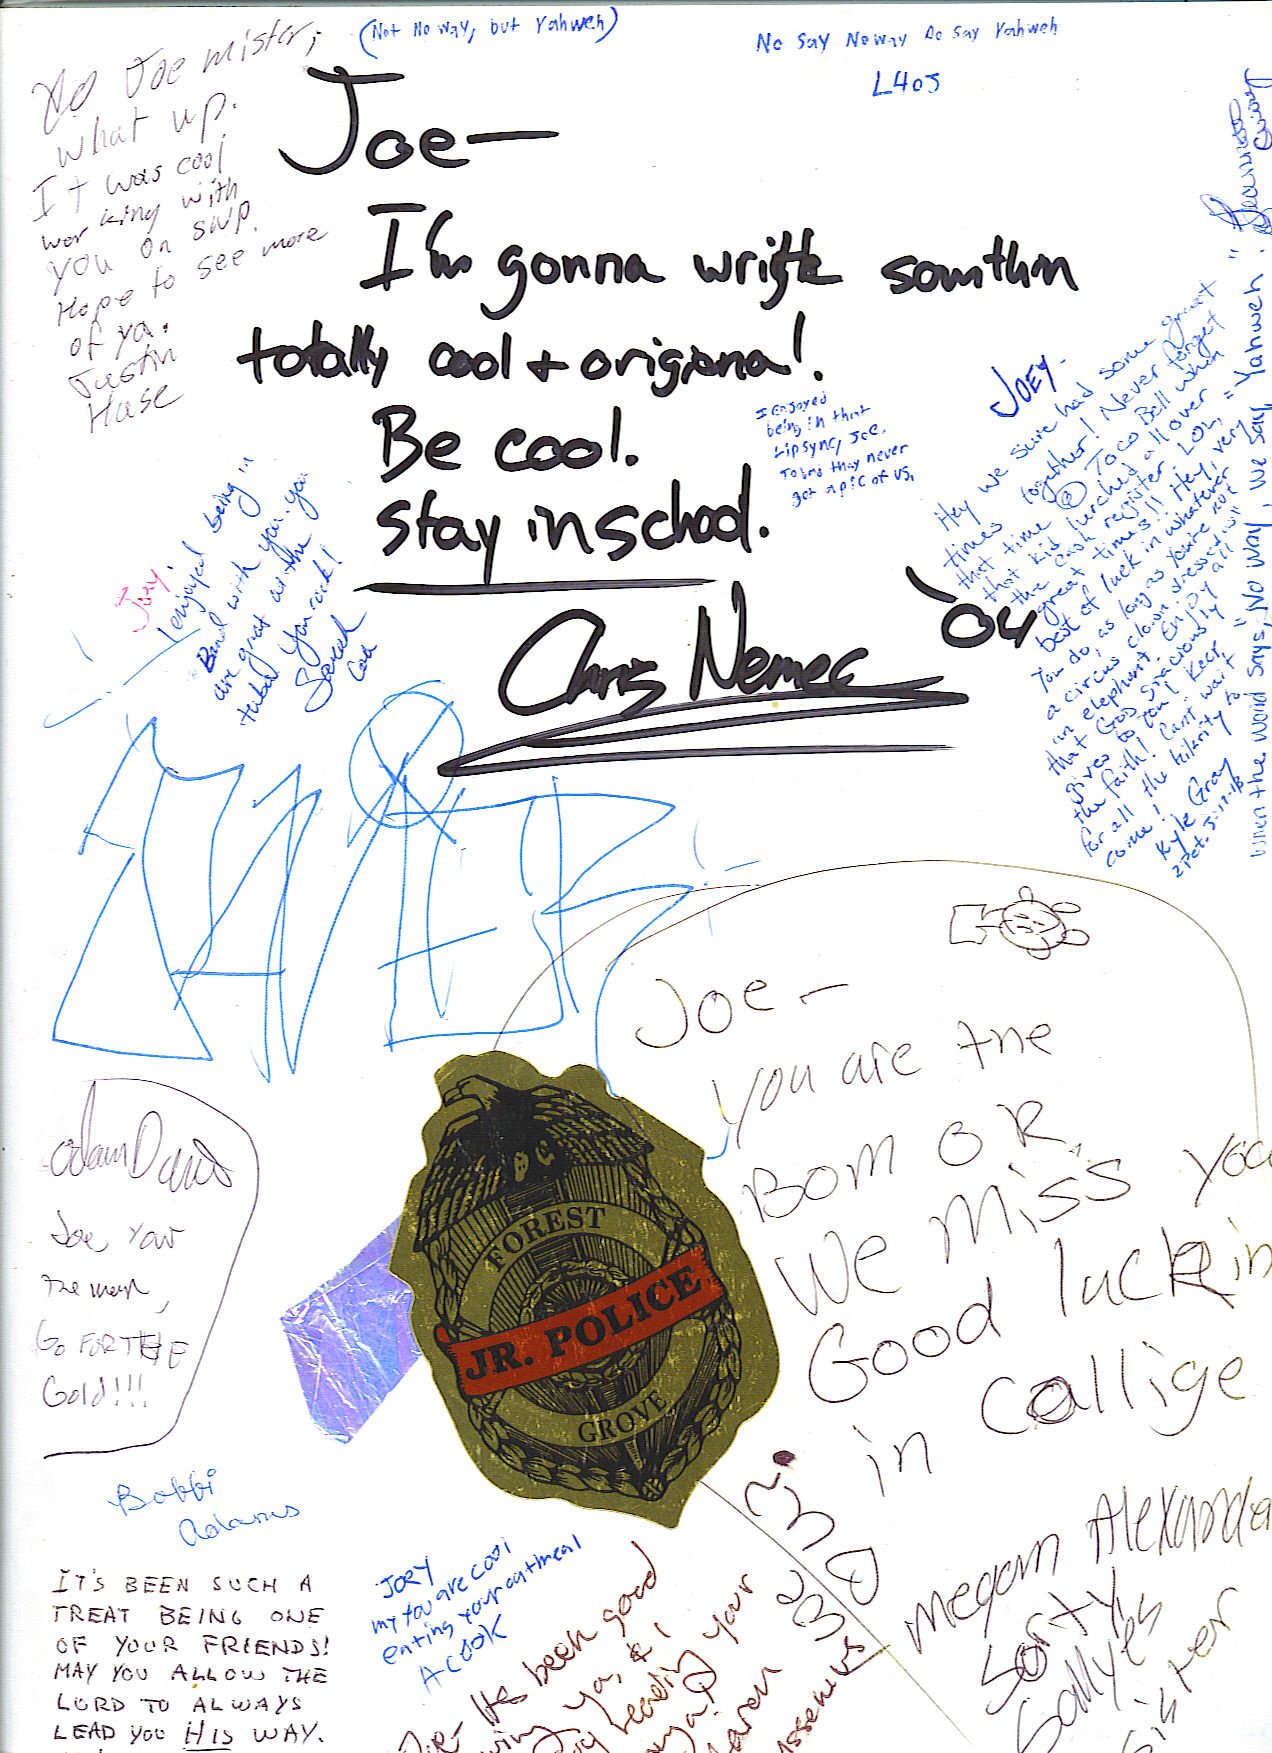 (Not No way, but Yahweh)
No Say Noway Do Say Yahweh
L4OJ
Yo Joe mister,
what up.
It was cool
working with
you on swp.
Hope to see more
of ya.
Justin
Hase
Joe—
I'm gonna write somthin
totally cool + origiona!
Be cool.
stay in school.
Chris Nemec '04
I enjoyed
being in that
Lipsync, Joe.
To bad they never
got a pic of us,
Joey.
I enjoyed being in
Band with you. you
are great at the
tuba! You rock!
Sarah
JOEY.
Hey we sure had some great
times together! Never forget
that time @ Taco Bell when
that kid lurched all over
the cash register LOL,
great times!! Hey, very
best of luck in whatever
You do, as long as your not
a circus clown dressed
in elephant. Enjoy all
that God graciously
gives to you! Keep
the faith! Can't wait
for all the hilarity to
come!
Kyle Gray
2 Pet.
When the world says, "No way", we say, "Yahweh."
Joe—
You are the
Bom o R.
We miss you
Good luck in
in callige
Megan Alexanda
Sorty
Sallyes
Sister
FOREST
JR. POLICE
GROVE
Adam Davis
Joe, Your
The man,
Go FOR THE
Gold!!!
Bobbi
Adams
IT'S BEEN SUCH A
TREAT BEING ONE
OF YOUR FRIENDS!
MAY YOU ALLOW THE
LORD TO ALWAYS
LEAD YOU HIS WAY.
JOEY
my you are cool
eating your oatmeal
A COOK
Joe- It's been good
ya, & I
leading your